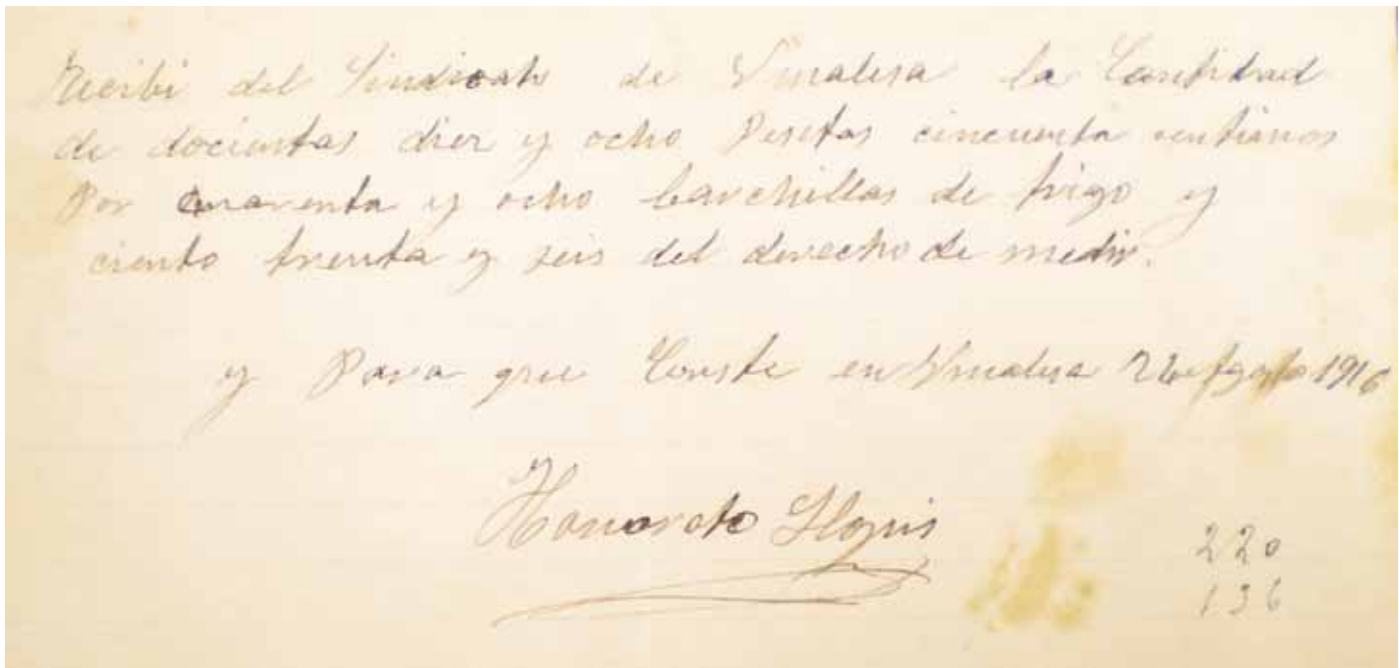 Recibi del Sindicato de Vinalesa la Cantidad
de docientas diez y ocho Pesetas cincuenta centimos
Por cuarenta y ocho barchillas de trigo y
ciento trenta y seis del derecho de medir.
y Para que Conste en Vinalesa Agosto 1916
Honorato Lloris
220
136